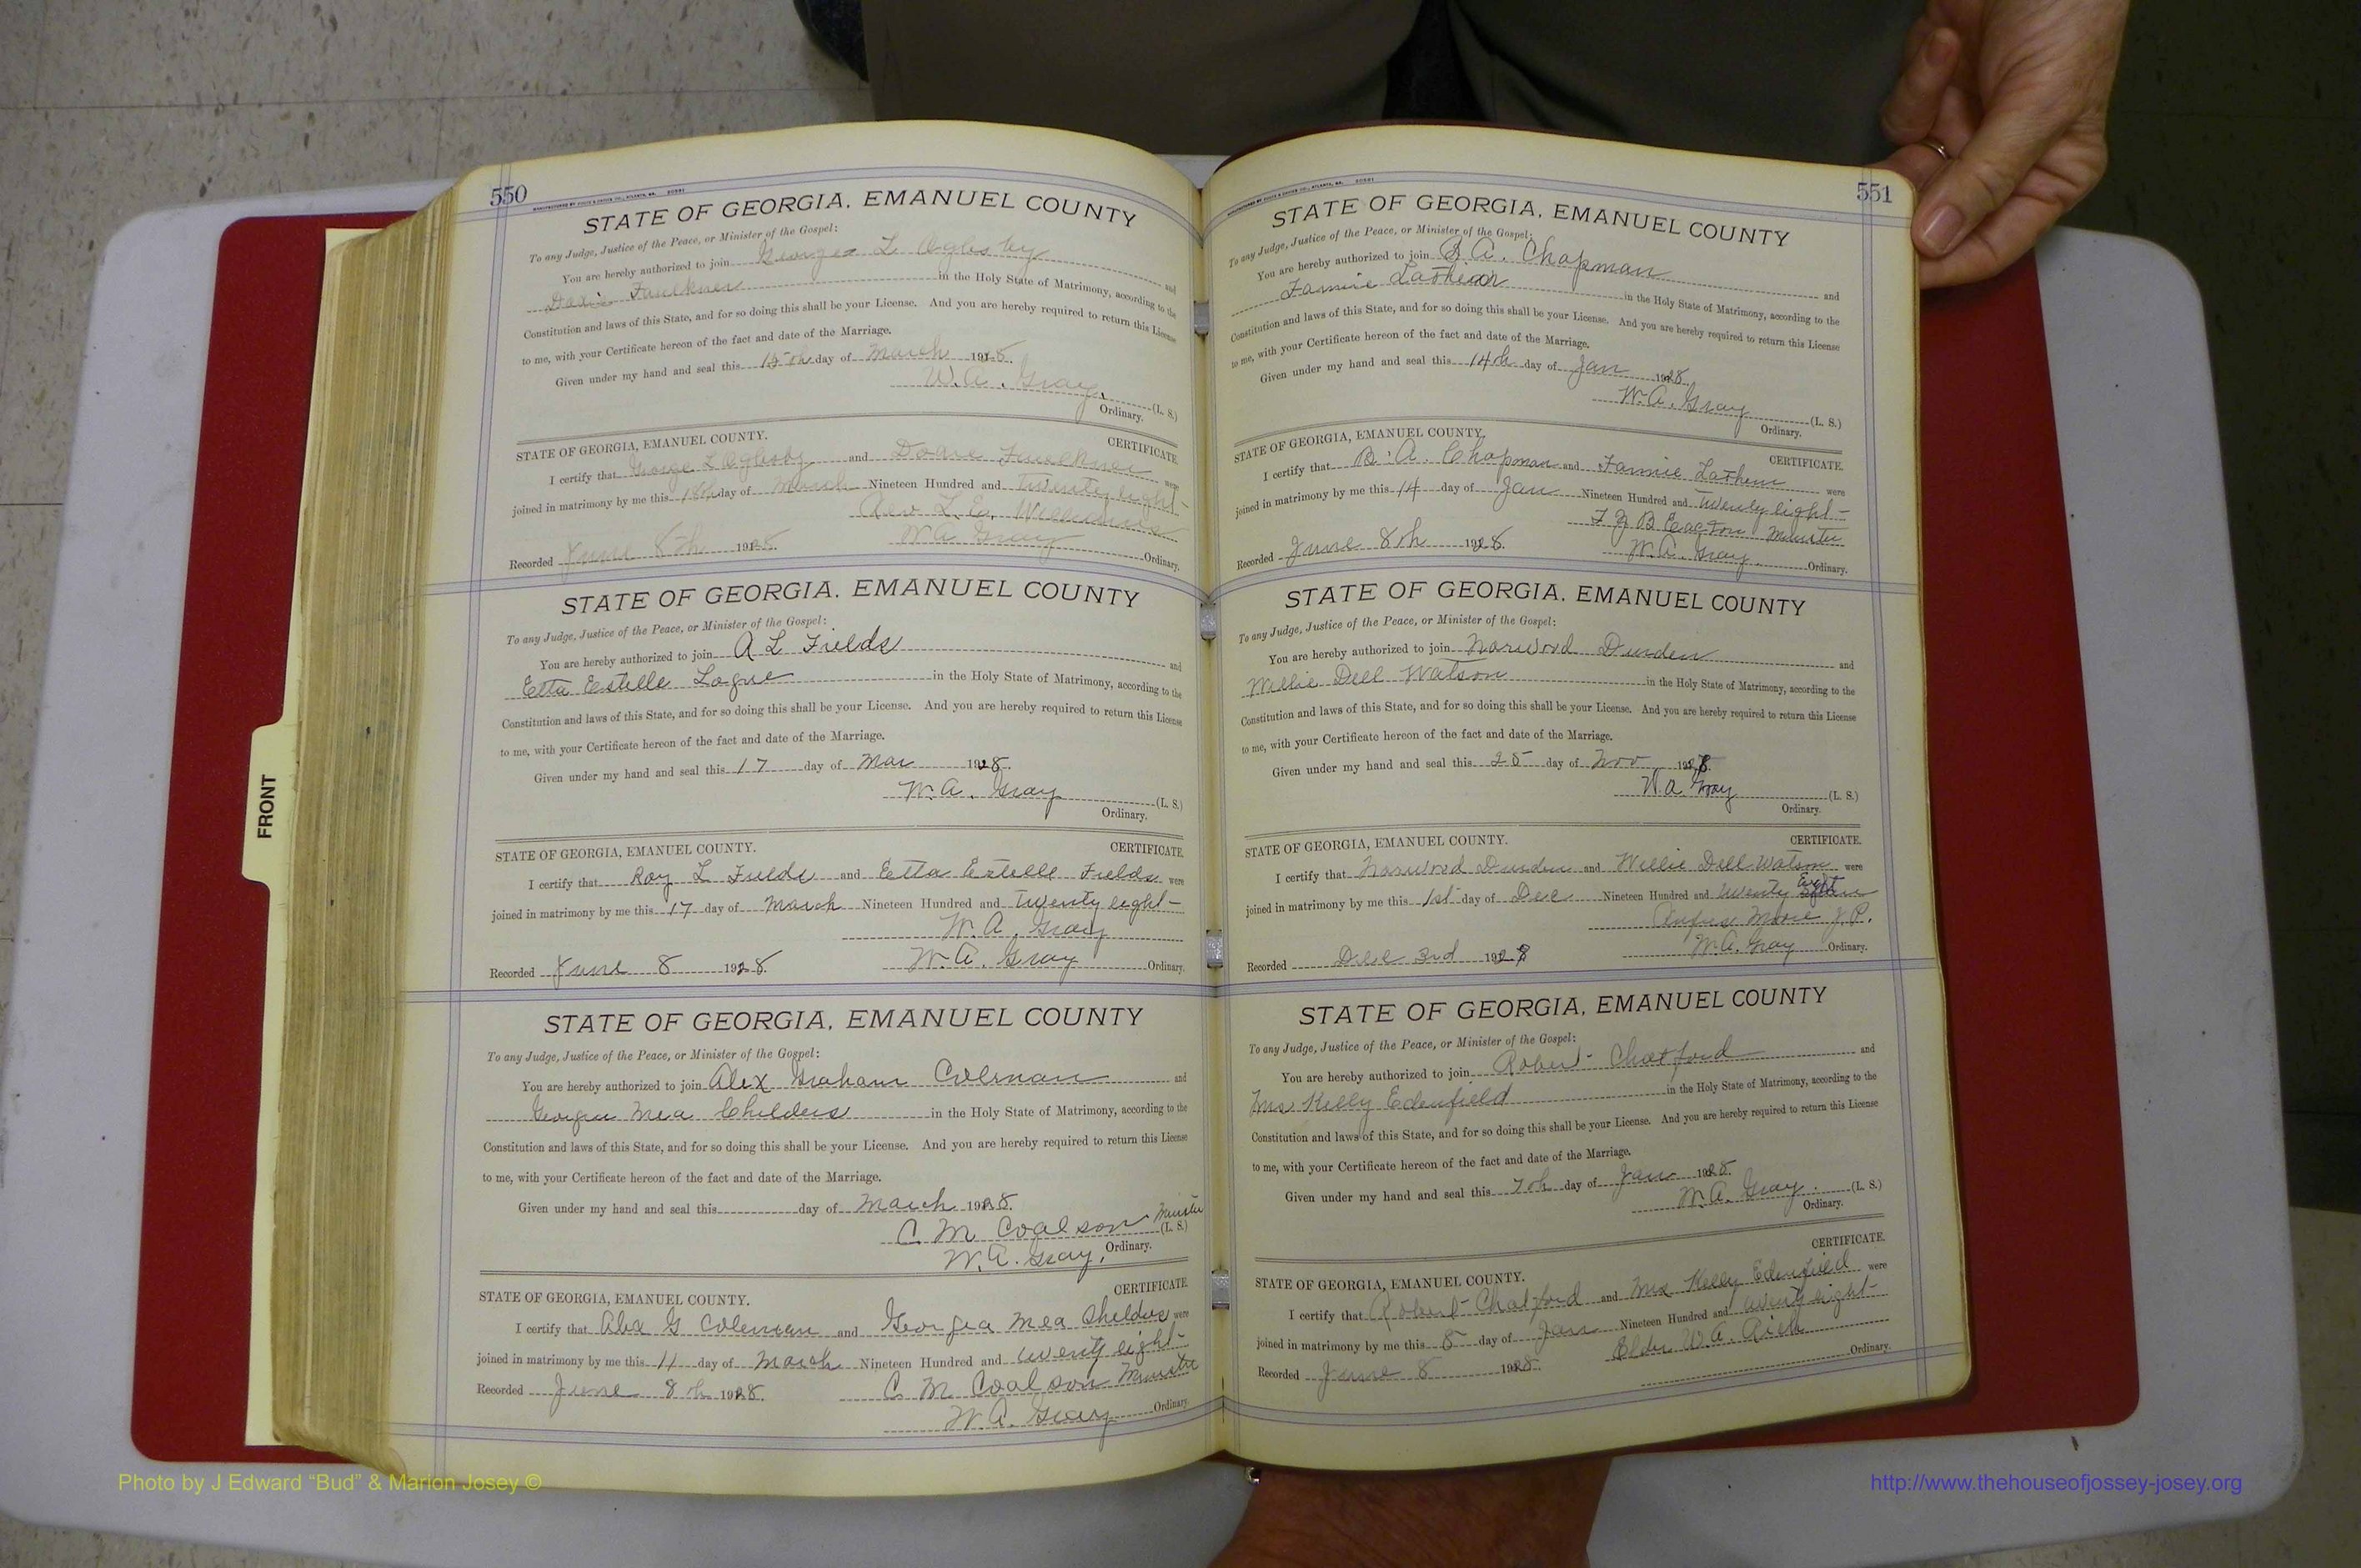 550
STATE OF GEORGIA, EMANUEL COUNTY
To any Judge, Justice of the Peace, or Minister of the Gospel:
You are hereby authorized to join George L Oglesby and
Faulkner in the Holy State of Matrimony, according to the
Constitution and laws of this State, and for so doing this shall be your License. And you are hereby required to return this License
to me, with your Certificate hereon of the fact and date of the Marriage.
Given under my hand and seal this day of March 1928.
W.A. Gray. (L. S.)
Ordinary.
STATE OF GEORGIA, EMANUEL COUNTY. CERTIFICATE
I certify that George L Oglesby and Faulkner were
joined in matrimony by me this 18th day of March Nineteen Hundred and twenty eight
Rev L. E. Williams
W A Gray
Recorded June 8th 1928. Ordinary.
STATE OF GEORGIA, EMANUEL COUNTY
To any Judge, Justice of the Peace, or Minister of the Gospel:
You are hereby authorized to join A L Fields and
Etta Estelle Logue in the Holy State of Matrimony, according to the
Constitution and laws of this State, and for so doing this shall be your License. And you are hereby required to return this License
to me, with your Certificate hereon of the fact and date of the Marriage.
Given under my hand and seal this 17 day of Mar 1928.
W. A. Gray (L. S.)
Ordinary.
STATE OF GEORGIA, EMANUEL COUNTY. CERTIFICATE
I certify that Roy L Fields and Etta Estelle Fields were
joined in matrimony by me this 17 day of March Nineteen Hundred and twenty eight
W. A. Gray
Recorded June 8 1928. W. A. Gray Ordinary.
STATE OF GEORGIA, EMANUEL COUNTY
To any Judge, Justice of the Peace, or Minister of the Gospel:
You are hereby authorized to join Alex Graham Coleman and
Georgia Mea Childers in the Holy State of Matrimony, according to the
Constitution and laws of this State, and for so doing this shall be your License. And you are hereby required to return this License
to me, with your Certificate hereon of the fact and date of the Marriage.
Given under my hand and seal this day of March 1928.
C. M Coalson Minister (L. S.)
W. A. Gray. Ordinary.
STATE OF GEORGIA, EMANUEL COUNTY. CERTIFICATE
I certify that Alex G Coleman and Georgia Mea were
joined in matrimony by me this 11 day of March Nineteen Hundred and twenty eight
Recorded June 8th 1928. C M Coalson Minister
W. A. Gray Ordinary
551
STATE OF GEORGIA, EMANUEL COUNTY
To any Judge, Justice of the Peace, or Minister of the Gospel:
You are hereby authorized to join B. A. Chapman and
Fannie in the Holy State of Matrimony, according to the
Constitution and laws of this State, and for so doing this shall be your License. And you are hereby required to return this License
to me, with your Certificate hereon of the fact and date of the Marriage.
Given under my hand and seal this 14th day of Jan 1928.
W. A. Gray (L. S.)
Ordinary.
STATE OF GEORGIA, EMANUEL COUNTY. CERTIFICATE.
I certify that B. A. Chapman and Fannie were
joined in matrimony by me this 14 day of Jan Nineteen Hundred and twenty eight
Minister
Recorded June 8th 1928. W. A. Gray. Ordinary.
STATE OF GEORGIA, EMANUEL COUNTY
To any Judge, Justice of the Peace, or Minister of the Gospel:
You are hereby authorized to join Norwood Durden and
Willie Dell Watson in the Holy State of Matrimony, according to the
Constitution and laws of this State, and for so doing this shall be your License. And you are hereby required to return this License
to me, with your Certificate hereon of the fact and date of the Marriage.
Given under my hand and seal this 25 day of Nov 1928
W. A Gray (L. S.)
Ordinary.
STATE OF GEORGIA, EMANUEL COUNTY. CERTIFICATE.
I certify that Norwood Durden and Willie Dell Watson were
joined in matrimony by me this 1st day of Dec Nineteen Hundred and twenty Eight
Rufus Moore J. P.
Recorded Dec 3rd 1928 W. A. Gray Ordinary.
STATE OF GEORGIA, EMANUEL COUNTY
To any Judge, Justice of the Peace, or Minister of the Gospel:
You are hereby authorized to join Robert Chatford and
Mrs Kelly Edenfield in the Holy State of Matrimony, according to the
Constitution and laws of this State, and for so doing this shall be your License. And you are hereby required to return this License
to me, with your Certificate hereon of the fact and date of the Marriage.
Given under my hand and seal this 7th day of Jan 1928.
W. A. Gray. (L. S.)
Ordinary.
STATE OF GEORGIA, EMANUEL COUNTY. CERTIFICATE.
I certify that Robert Chatford and Mrs Kelly Edenfield were
joined in matrimony by me this 8 day of Jan Nineteen Hundred and twenty eight
Elder W. A. Rich
Recorded June 8 1928. Ordinary.
FRONT
Photo by J Edward “Bud” & Marion Josey ©
http://www.thehouseofjossey-josey.org